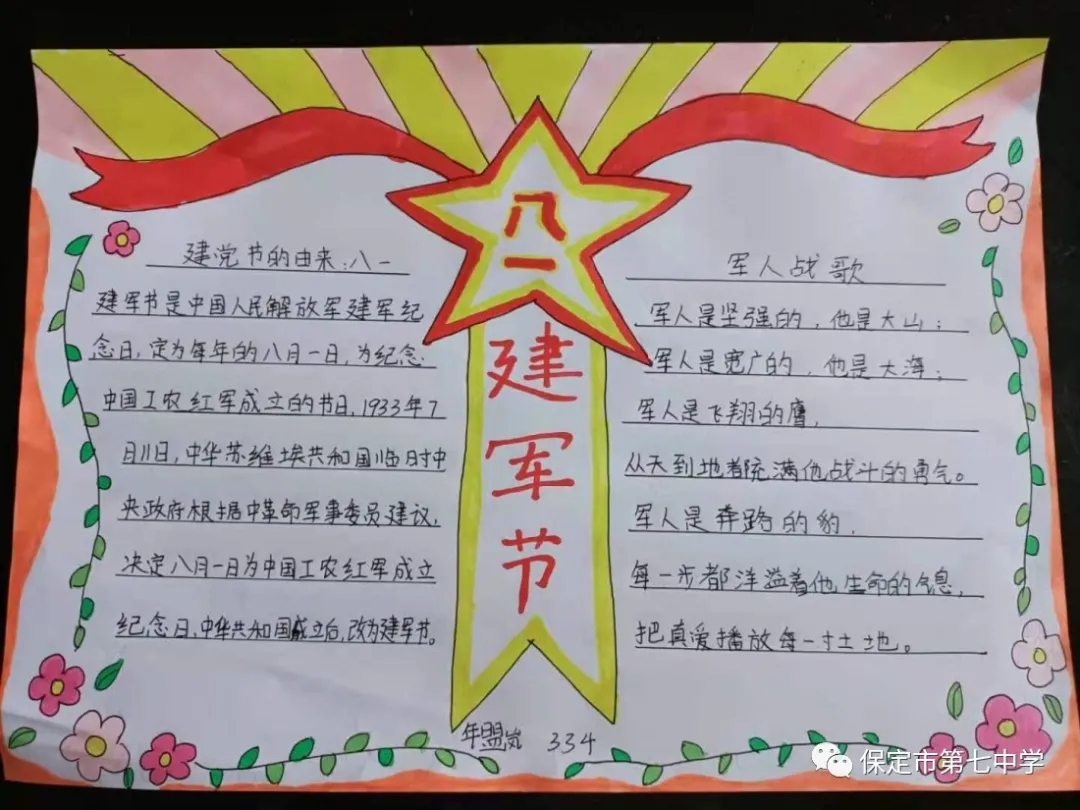 八一
建军节
建党节的由来:八一
建军节是中国人民解放军建军纪
念日,定为每年的八月一日,为纪念
中国工农红军成立的节日,1933年7
日11日,中华苏维埃共和国临时中
央政府根据中革命军事委员建议,
决定八月一日为中国工农红军成立
纪念日,中华共和国成立后,改为建军节。
军人战歌
军人是坚强的,他是大山;
军人是宽广的,他是大海;
军人是飞翔的鹰,
从天到地都充满他战斗的勇气。
军人是奔跑的豹,
每一步都洋溢着他生命的气息,
把真爱播放每一寸土地。
年盟岚 334
保定市第七中学